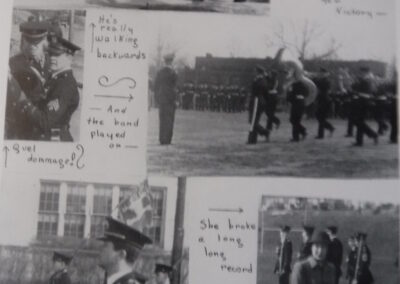 Victory —
He's
really
walking
backwards
— And
the band
played
on —
Quel
dommage!
She broke
a long
long
record